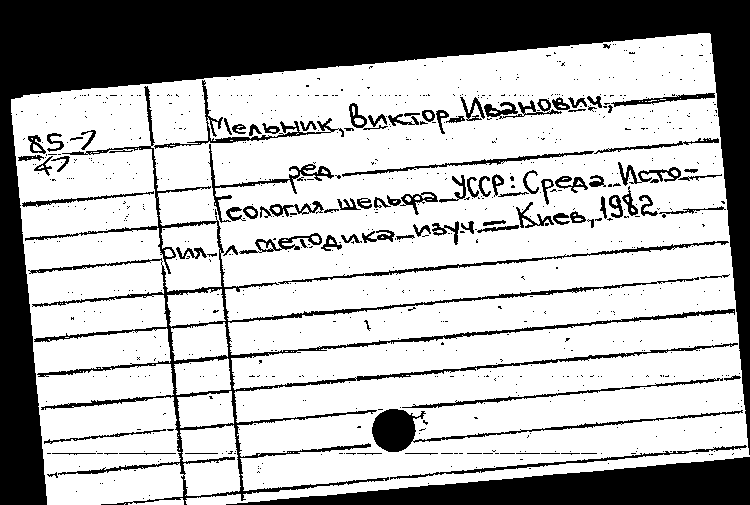 85-7
47
Мельник, Виктор Иванович,
ред.
Геология шельфа УССР: Среда. Исто-
рия и методика изуч. = Киев, 1982.